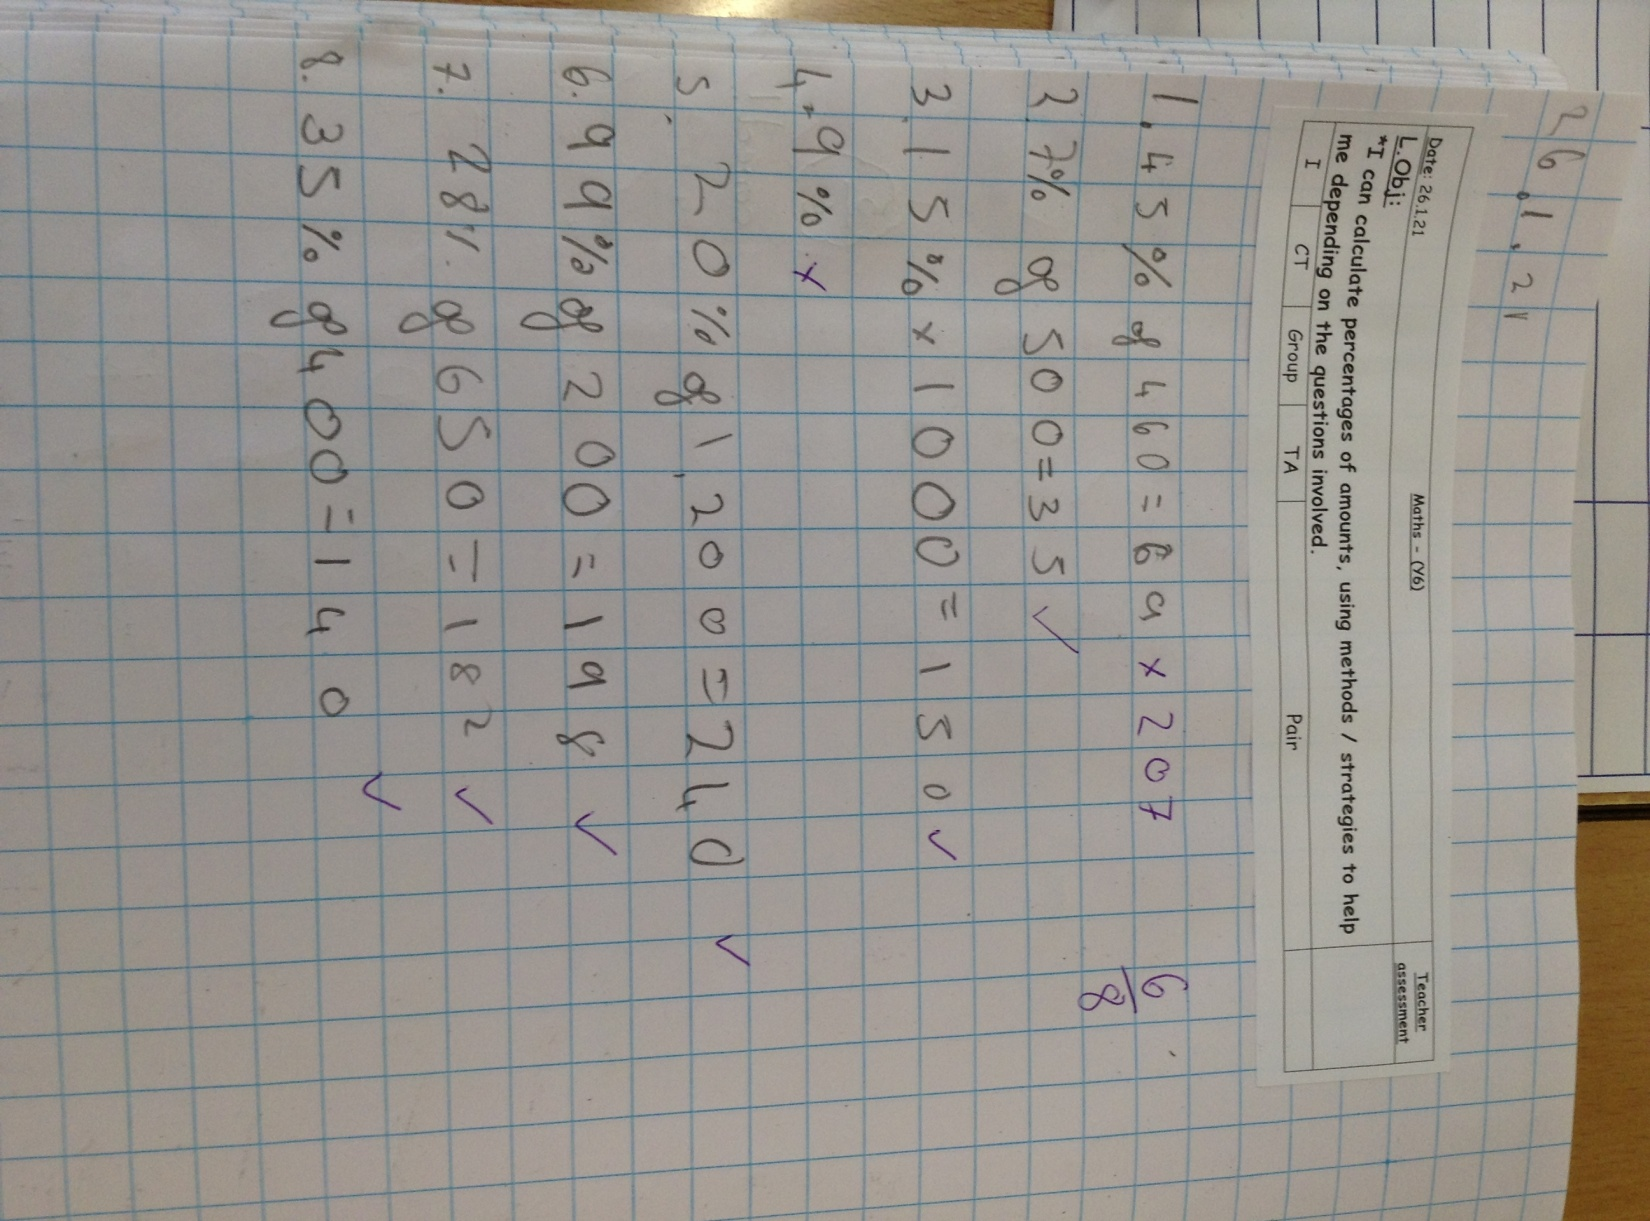 26.1.21
Date: 26.1.21
Maths - (Y6)
Teacher assessment
L.Obj:
*I can calculate percentages of amounts, using methods / strategies to help
me depending on the questions involved.
I CT Group TA Pair
1. 45% of 460 = 69 x 207
6/8
2. 7% of 500 = 35 ✓
3. 15% x 1000 = 150 ✓
4. 9% x
5. 20% of 1,200 = 240 ✓
6. 99% of 200 = 198 ✓
7. 28% of 650 = 182 ✓
8. 35% of 400 = 140 ✓